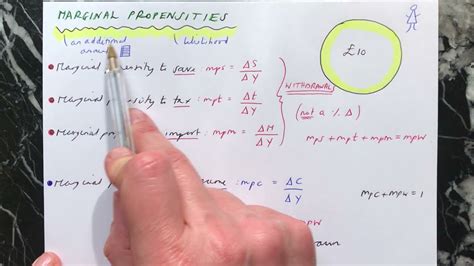 MARGINAL PROPENSITIES
an additional
amount
likelihood
£10
Marginal to save : mps = ΔS/ΔY
Marginal to tax : mpt = Δt/ΔY
Marginal import : mpm = ΔM/ΔY
WITHDRAWAL
(not a % Δ)
mps + mpt + mpm = mpw
Marginal : mpc = ΔC/ΔY
mpc + mpw = 1